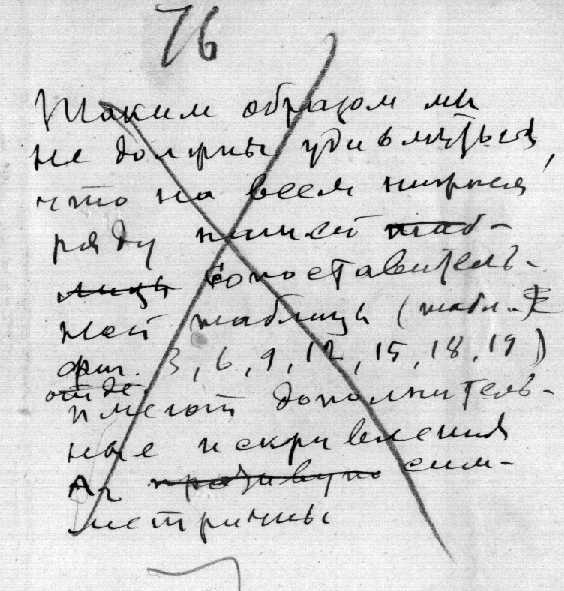 76
Таким образом мы
не должны удивляться,
что на всем нижнем
ряду нашей таб-
лицы сопоставитель-
ной таблицы (табл.
фиг. 3, 6, 9, 12, 15, 18, 19)
имеют дополнитель-
ные искривления
симметричны